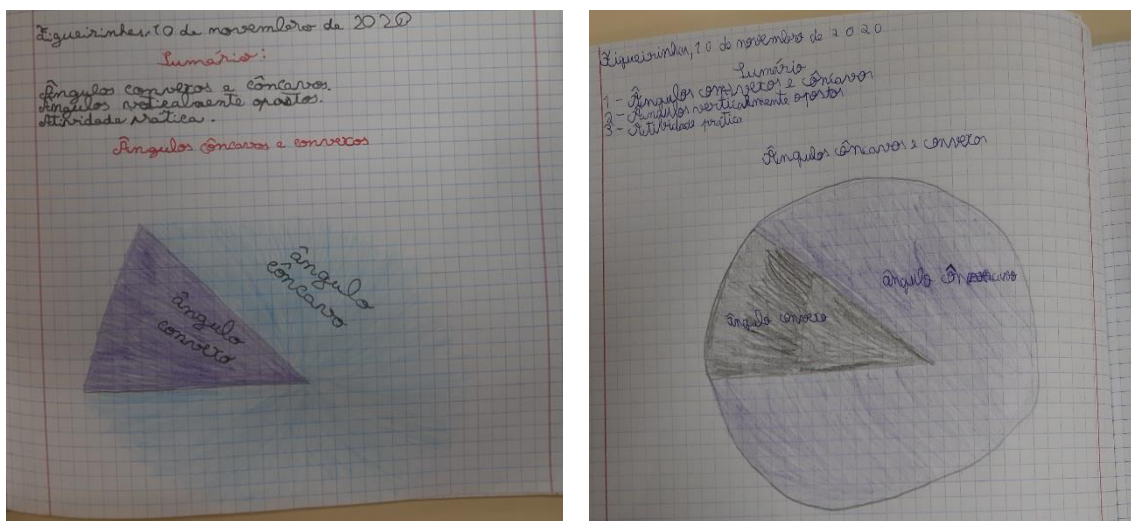 Figueirinhas, 10 de novembro de 2020
Sumário:
Ângulos convexos e côncavos.
Ângulos verticalmente opostos.
Atividade pratica.
Ângulos côncavos e convexos
ângulo
côncavo
ângulo
convexo.
Figueirinhas, 10 de novembro de 2020
Sumário
1 - Ângulos convexos e côncavos
2 - Ângulos verticalmente opostos
3 - Atividade prática
Ângulos côncavos e convexos
ângulo côncavo
ângulo convexo